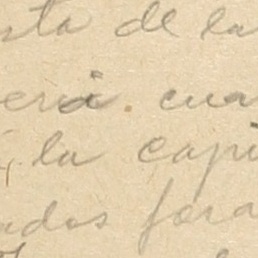 sta de la
eria. cua
, la capi
ados fora